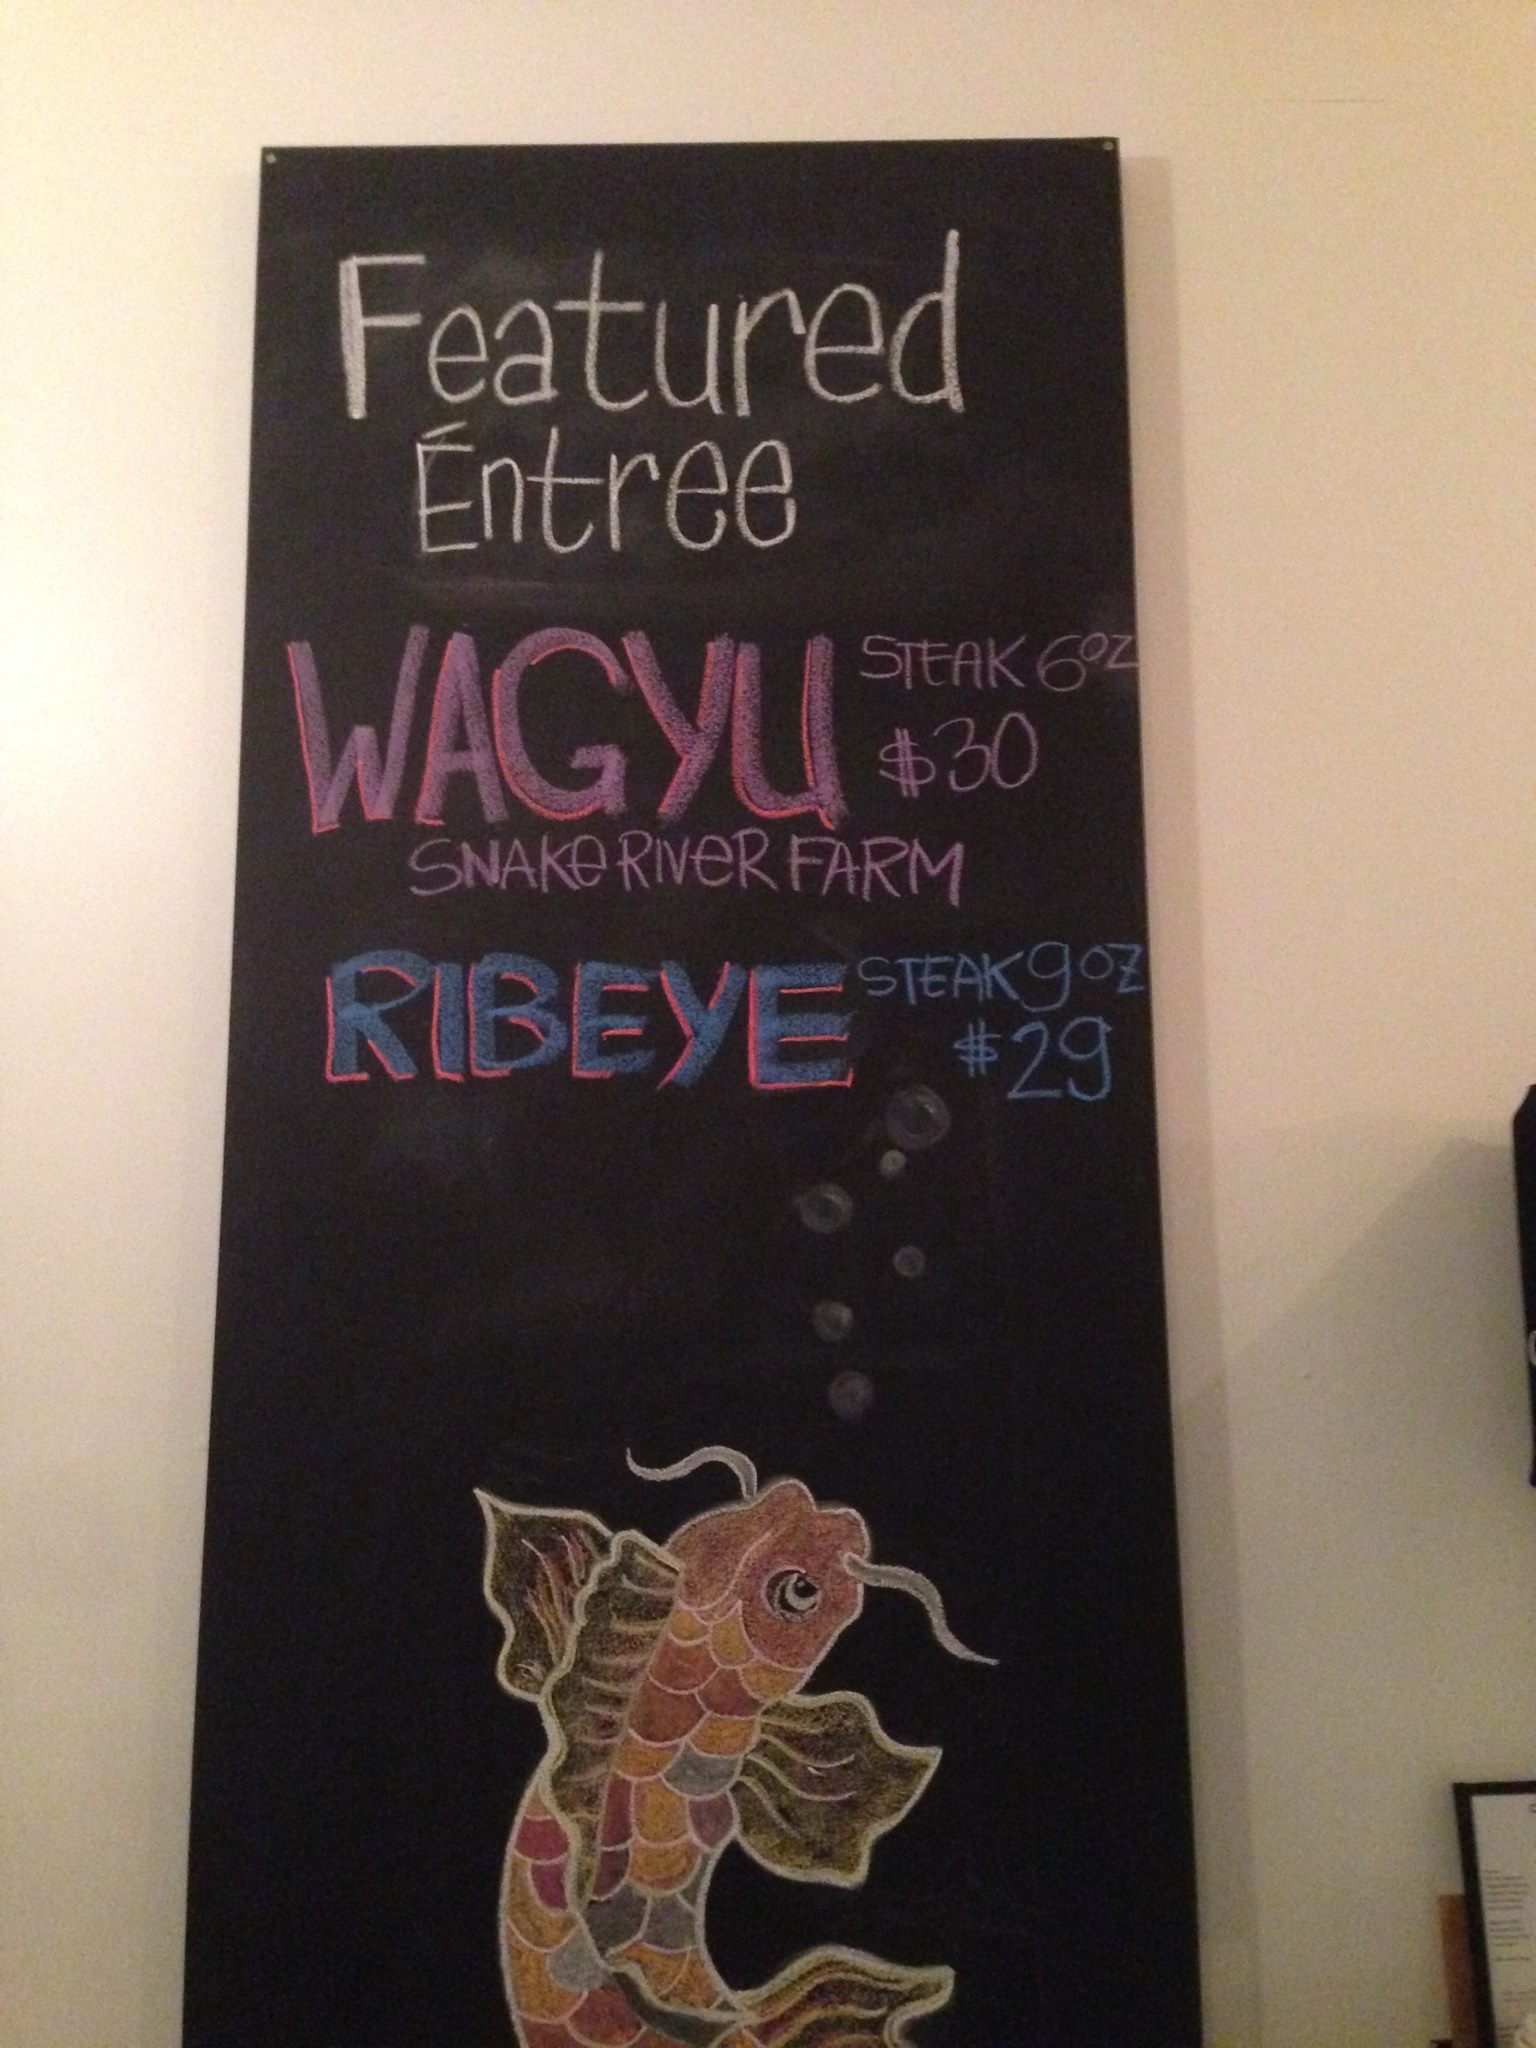 Featured
Éntree
WAGYU STEAK 6oz
$30
SNAKE RIVER FARM
RIBEYE STEAK 9oz
$29